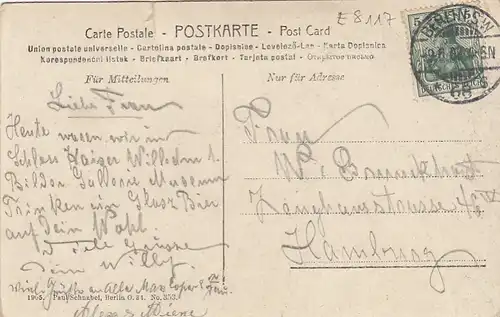 E 8117
Carte Postale - POSTKARTE - Post Card
Union postale universelle - Cartolina postale - Dopisnice - Levelező-Lap - Karta Dopisnica
Korespondenční lístek - Briefkaart - Brefkort - Tarjeta postal - Открытое письмо
Für Mitteilungen
Nur für Adresse
5
BERLIN S.W.
68
Liebe Frau
Heute waren wir im
Schloss Kaiser Wilhelm I.
Bilder Gallerie Museum
Trinken ein Glas Bier
auf Dein Wohl.
Viele Grüsse
Dein Willy.
Viele Grüße an Alle Max
Frau
W.
Hamburg
1905. Paul Schnabel, Berlin O. 34. No. 353.